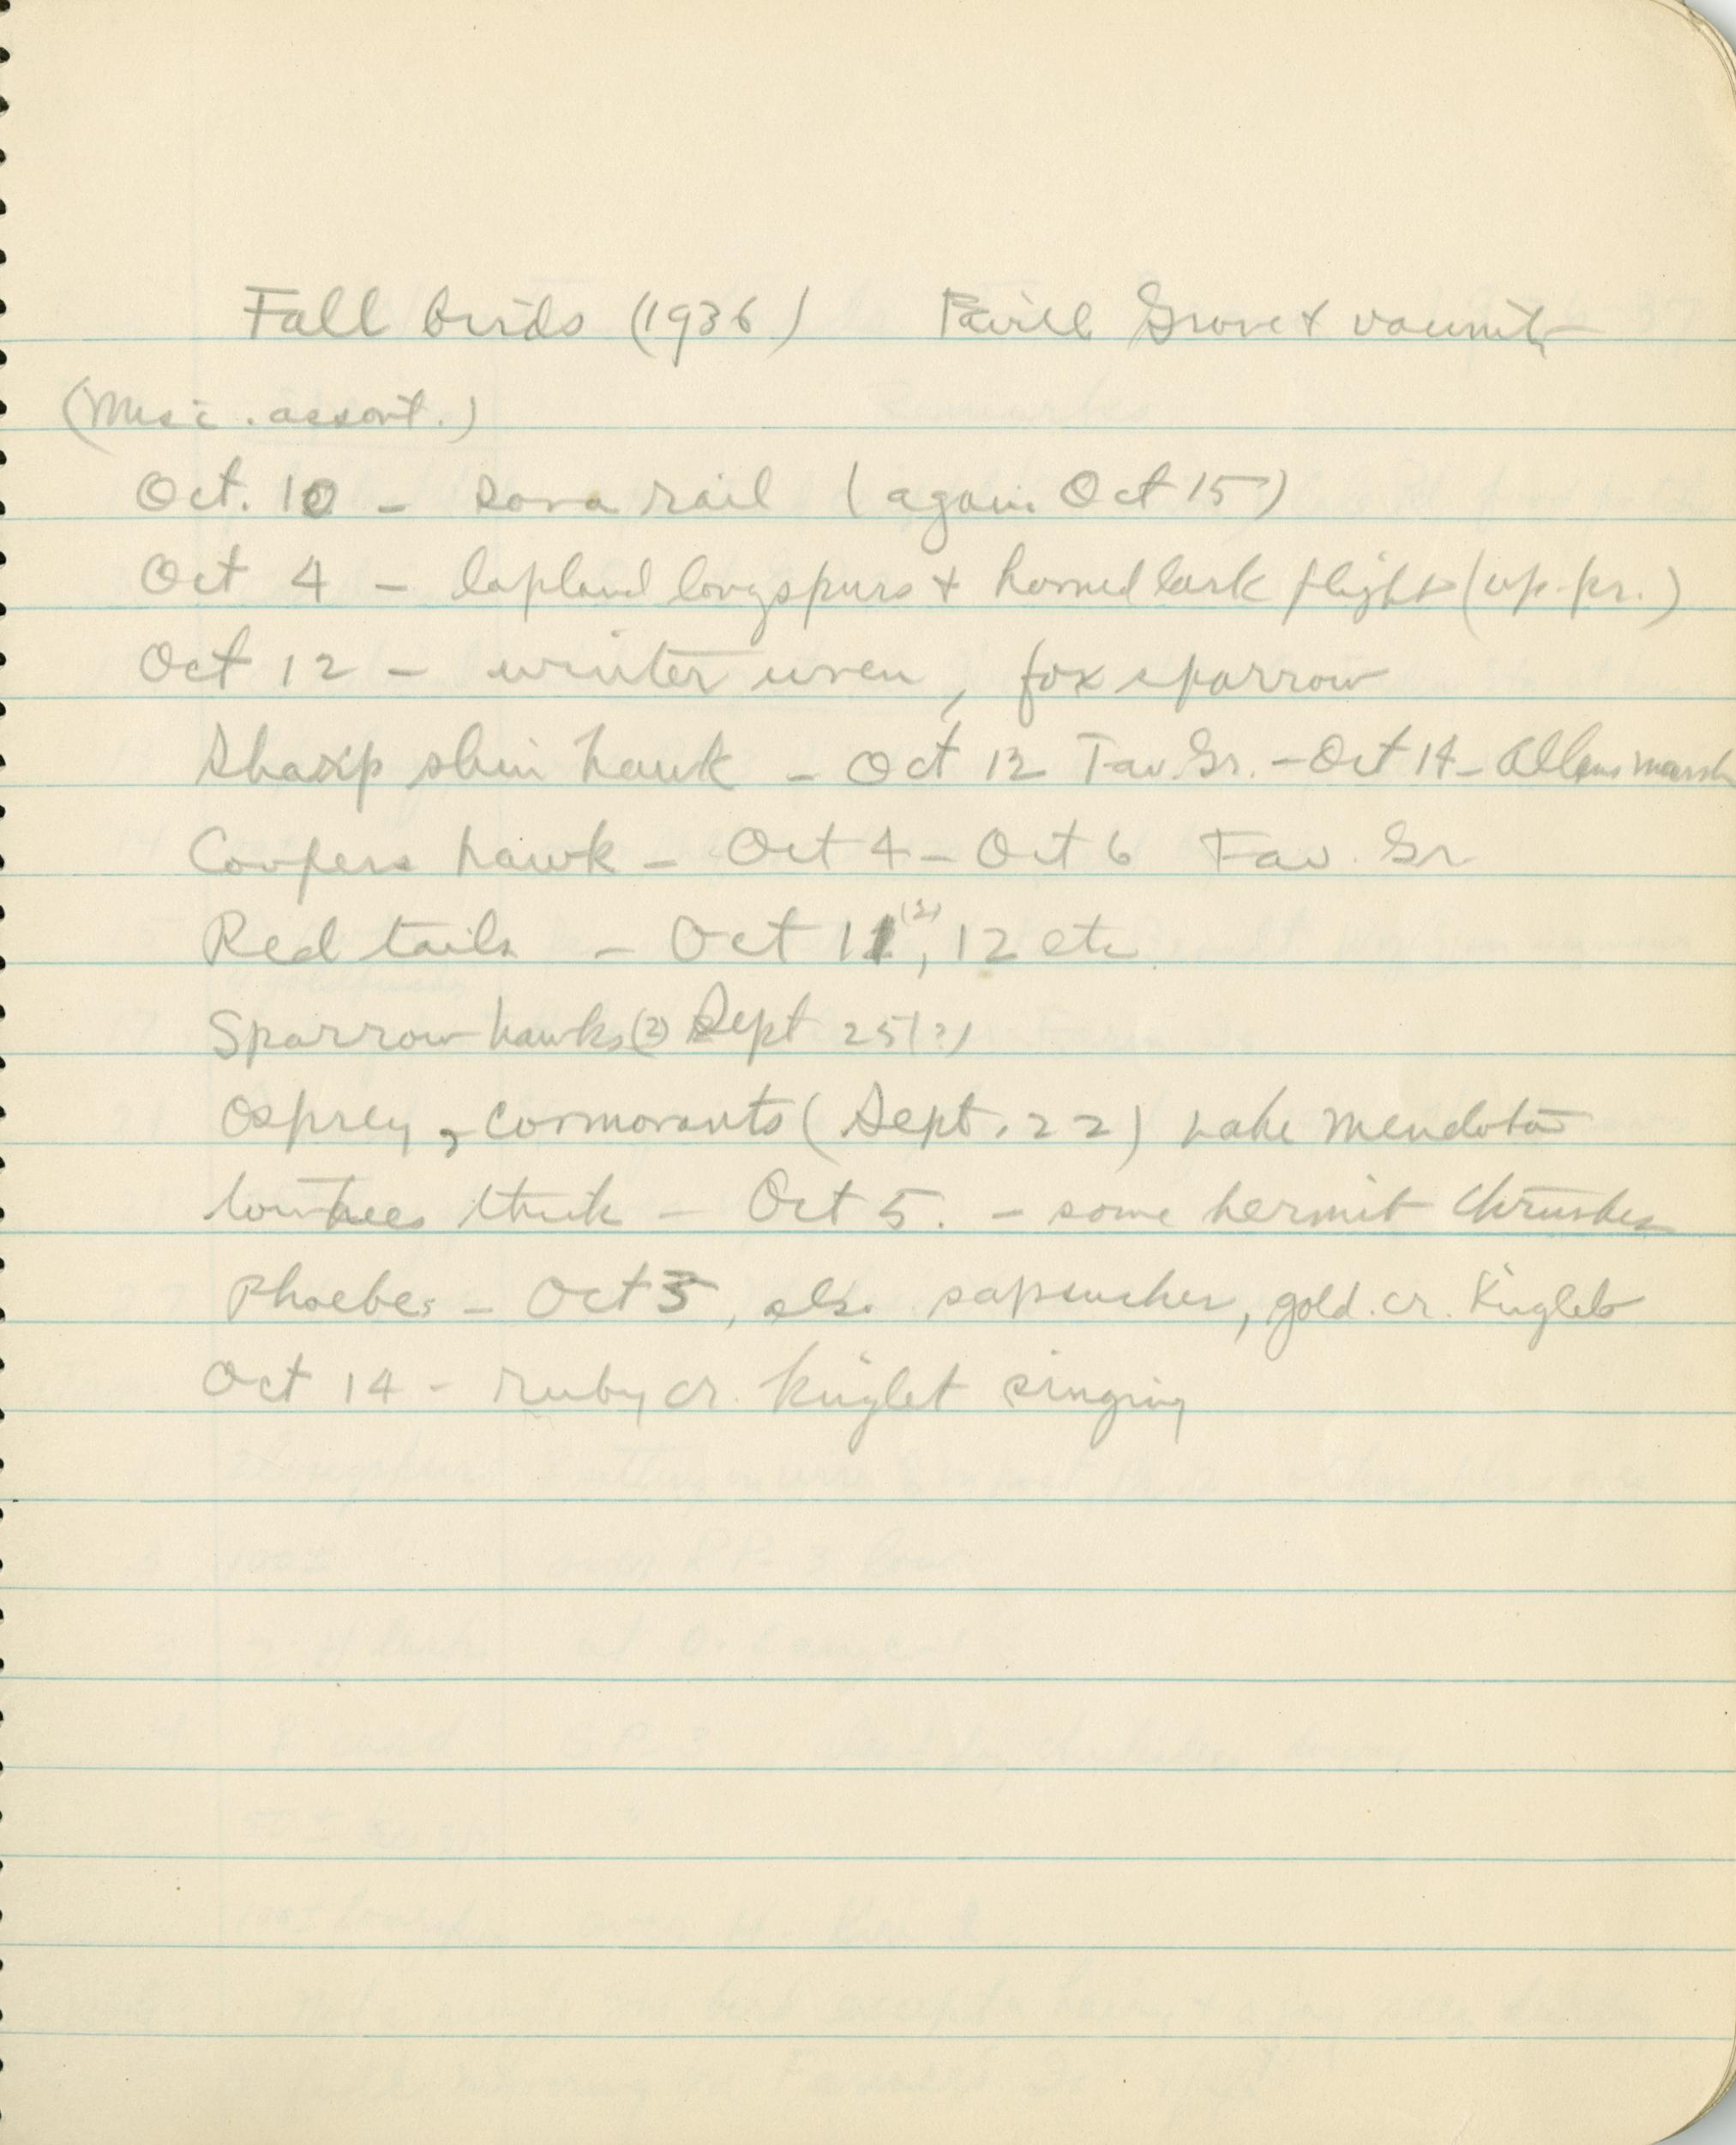 Fall birds (1936) Faville Grove & vacinity
(Misc. assort.)
Oct. 10 - Sora rail (again Oct 15)
Oct 4 - lapland longspurs & horned lark flight (up. pr.)
Oct 12 - winter wren, fox sparrow
Sharp shin hawk - Oct 12 Fav. Gr. - Oct 14 - Allens marsh
Coopers hawk - Oct 4 - Oct 6 Fav. Gr
Red tails - Oct 11(2), 12 etc.
Sparrow hawks (2) Sept 25(?)
Osprey, Cormorants (Sept. 22) Lake Mendota
towhees thick - Oct 5. - some hermit thrushes
Phoebes - Oct 5, also sapsucker, gold. cr. Kinglets
Oct 14 - ruby cr. kinglet singing